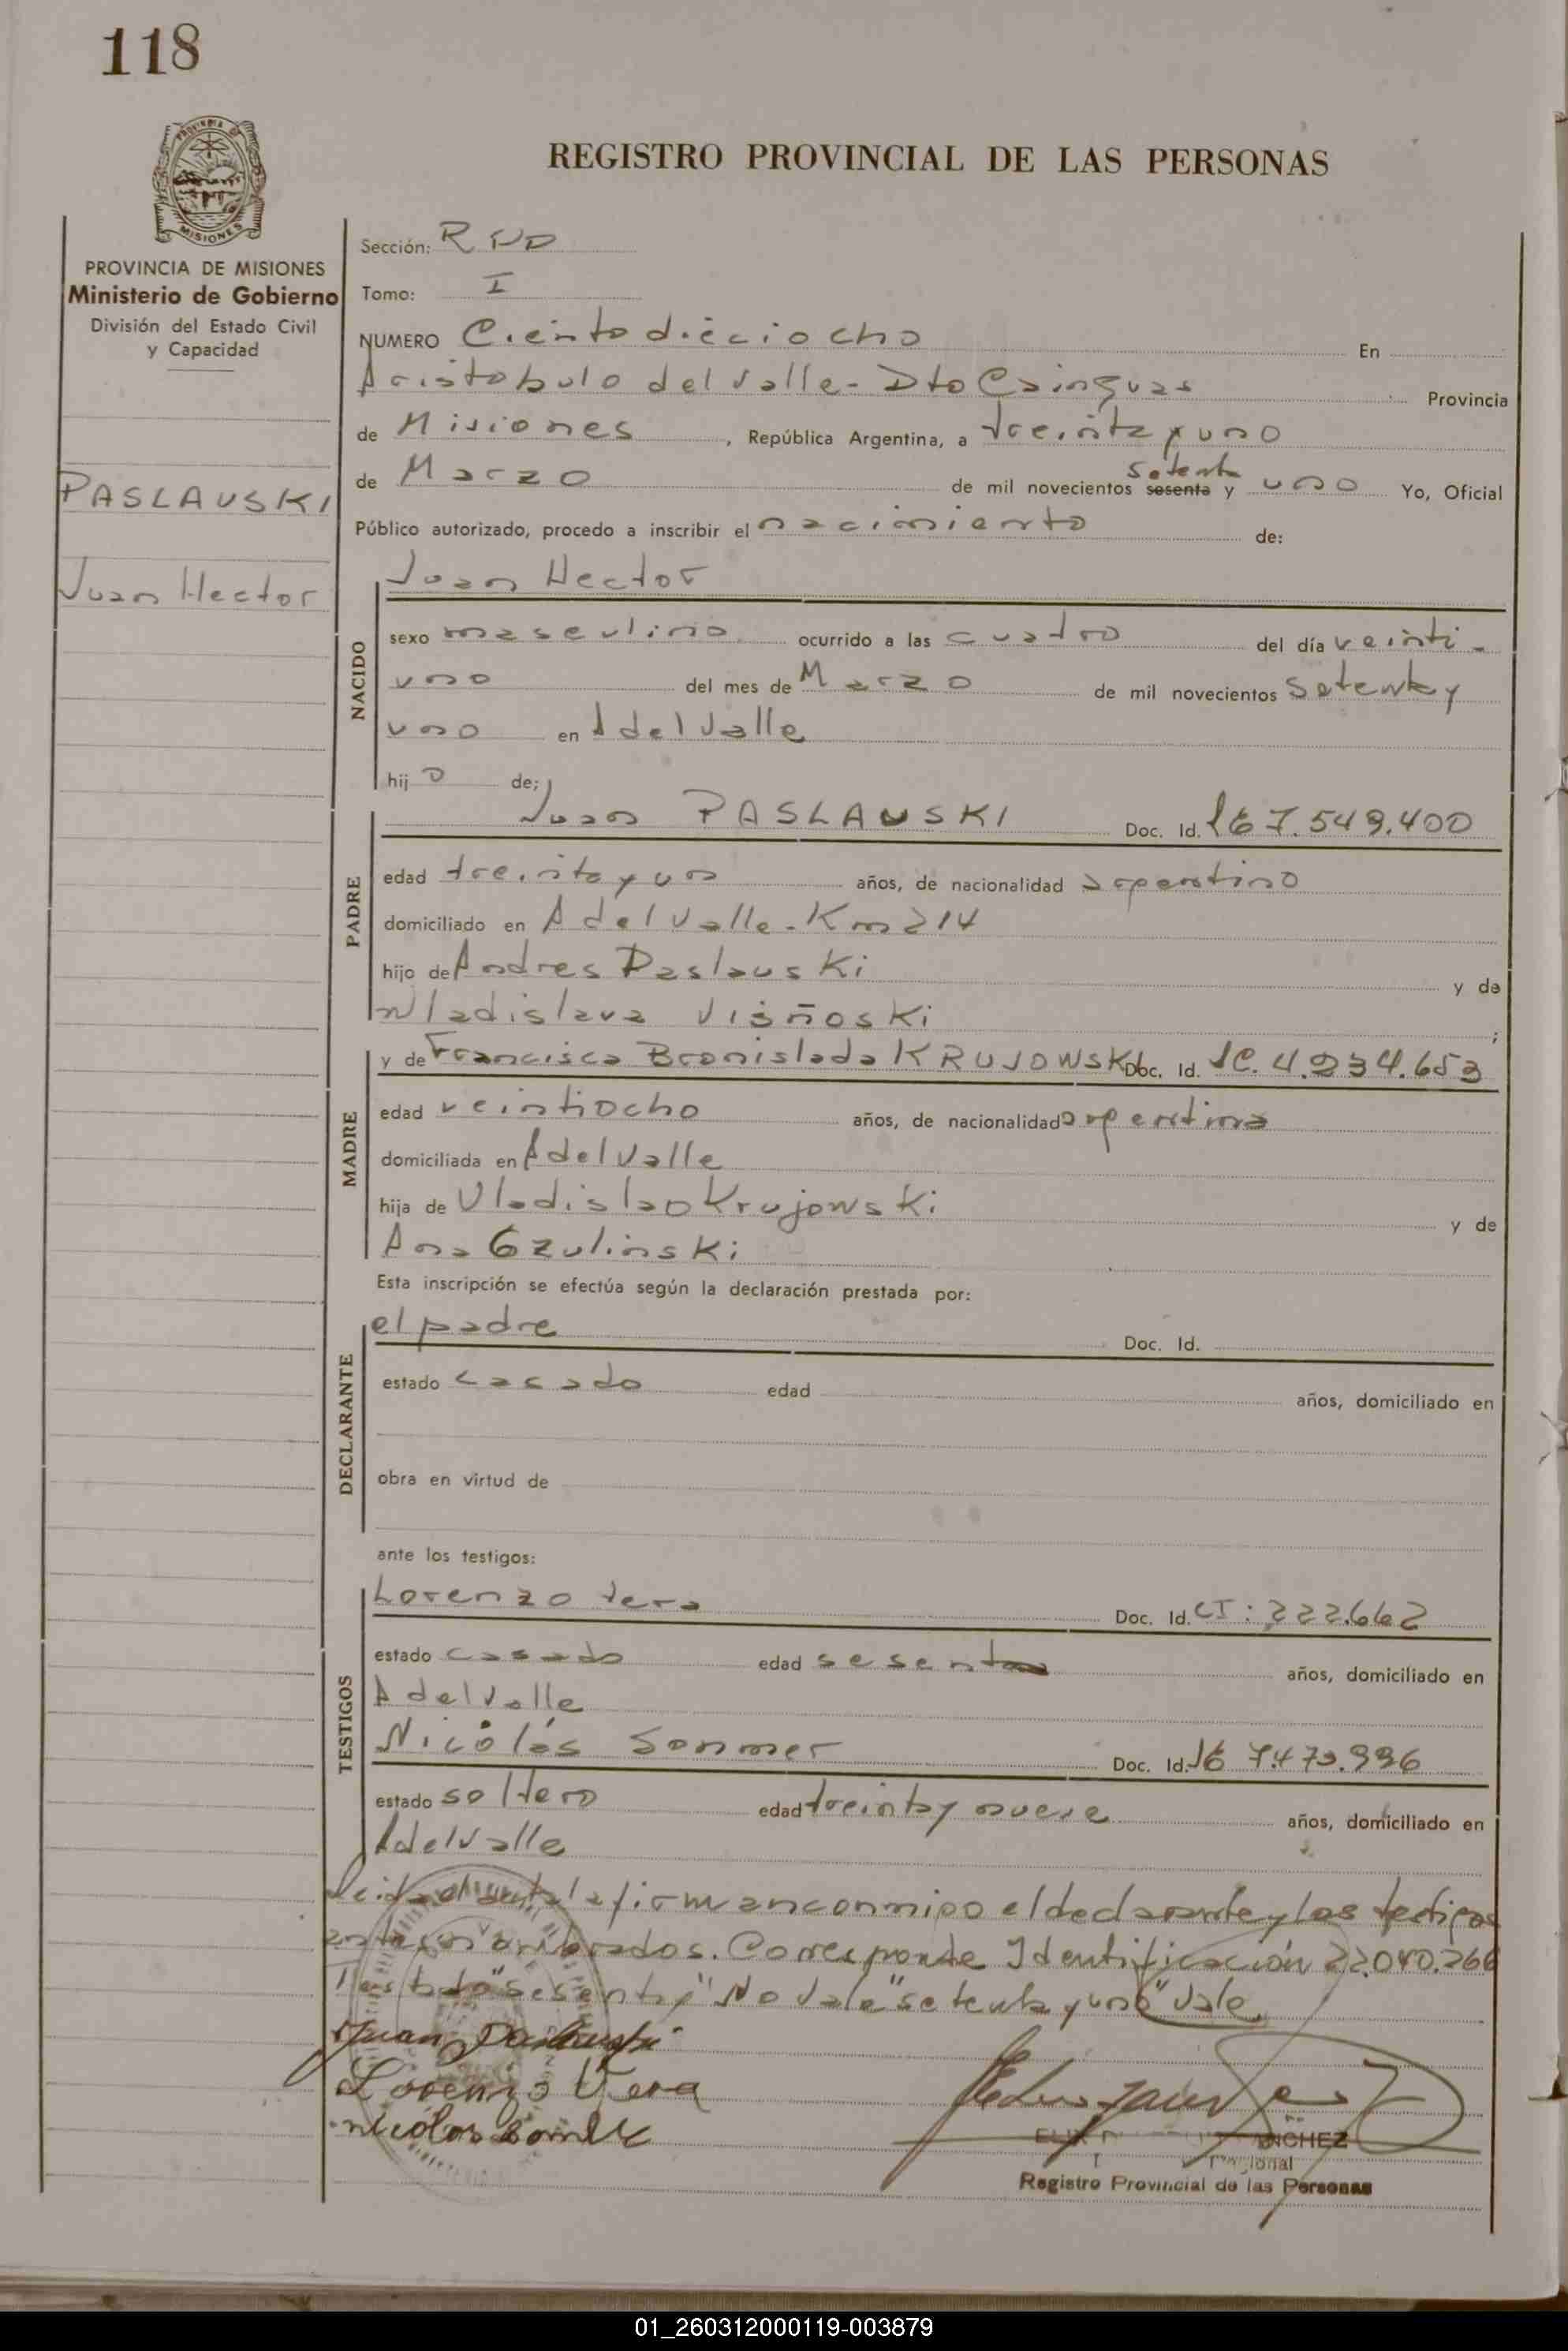 118
PROVINCIA DE MISIONES
REGISTRO PROVINCIAL DE LAS PERSONAS
PROVINCIA DE MISIONES
Ministerio de Gobierno
División del Estado Civil
y Capacidad
PASLAUSKI
Juan Hector
Sección:
Tomo: I
NUMERO Ciento dieciocho En
Aristobulo del Valle - Dto Cainguas Provincia
de Misiones, República Argentina, a treinta y uno
de Marzo de mil novecientos setenta sesenta y uno Yo, Oficial
Público autorizado, procedo a inscribir el nacimiento de:
NACIDO
Juan Hector
sexo masculino ocurrido a las cuatro del día veinti-
uno del mes de Marzo de mil novecientos setenta y
uno en A del Valle
hijo de;
PADRE
Juan PASLAUSKI Doc. Id. 7.549.400
edad treinta y un años, de nacionalidad argentino
domiciliado en A del Valle - Km 214
hijo de Andres Paslauski y de
Wladislava Visñoski ;
MADRE
y de Francisca Bronislada KRUJOWSKI Doc. Id. 4.234.653
edad veintiocho años, de nacionalidad argentina
domiciliada en A del Valle
hija de Vladislao Krujowski y de
Ana Gzulinski
Esta inscripción se efectúa según la declaración prestada por:
DECLARANTE
el padre Doc. Id.
estado casado edad años, domiciliado en
obra en virtud de
ante los testigos:
TESTIGOS
Lorenzo Vera Doc. Id. CI: 222.662
estado casado edad sesenta años, domiciliado en
A del Valle
Nicolás Sommer Doc. Id. 7.473.996
estado soltero edad treinta y nueve años, domiciliado en
A del Valle
Leida el acta la firman conmigo el declarante y los testigos
antes nombrados. Corresponde Identificación 22.040.266
Testado "sesenta y" No vale "setenta y uno" Vale
Juan Paslauski
Lorenzo Vera
nicolas
Registro Provincial de las Personas
01_260312000119-003879